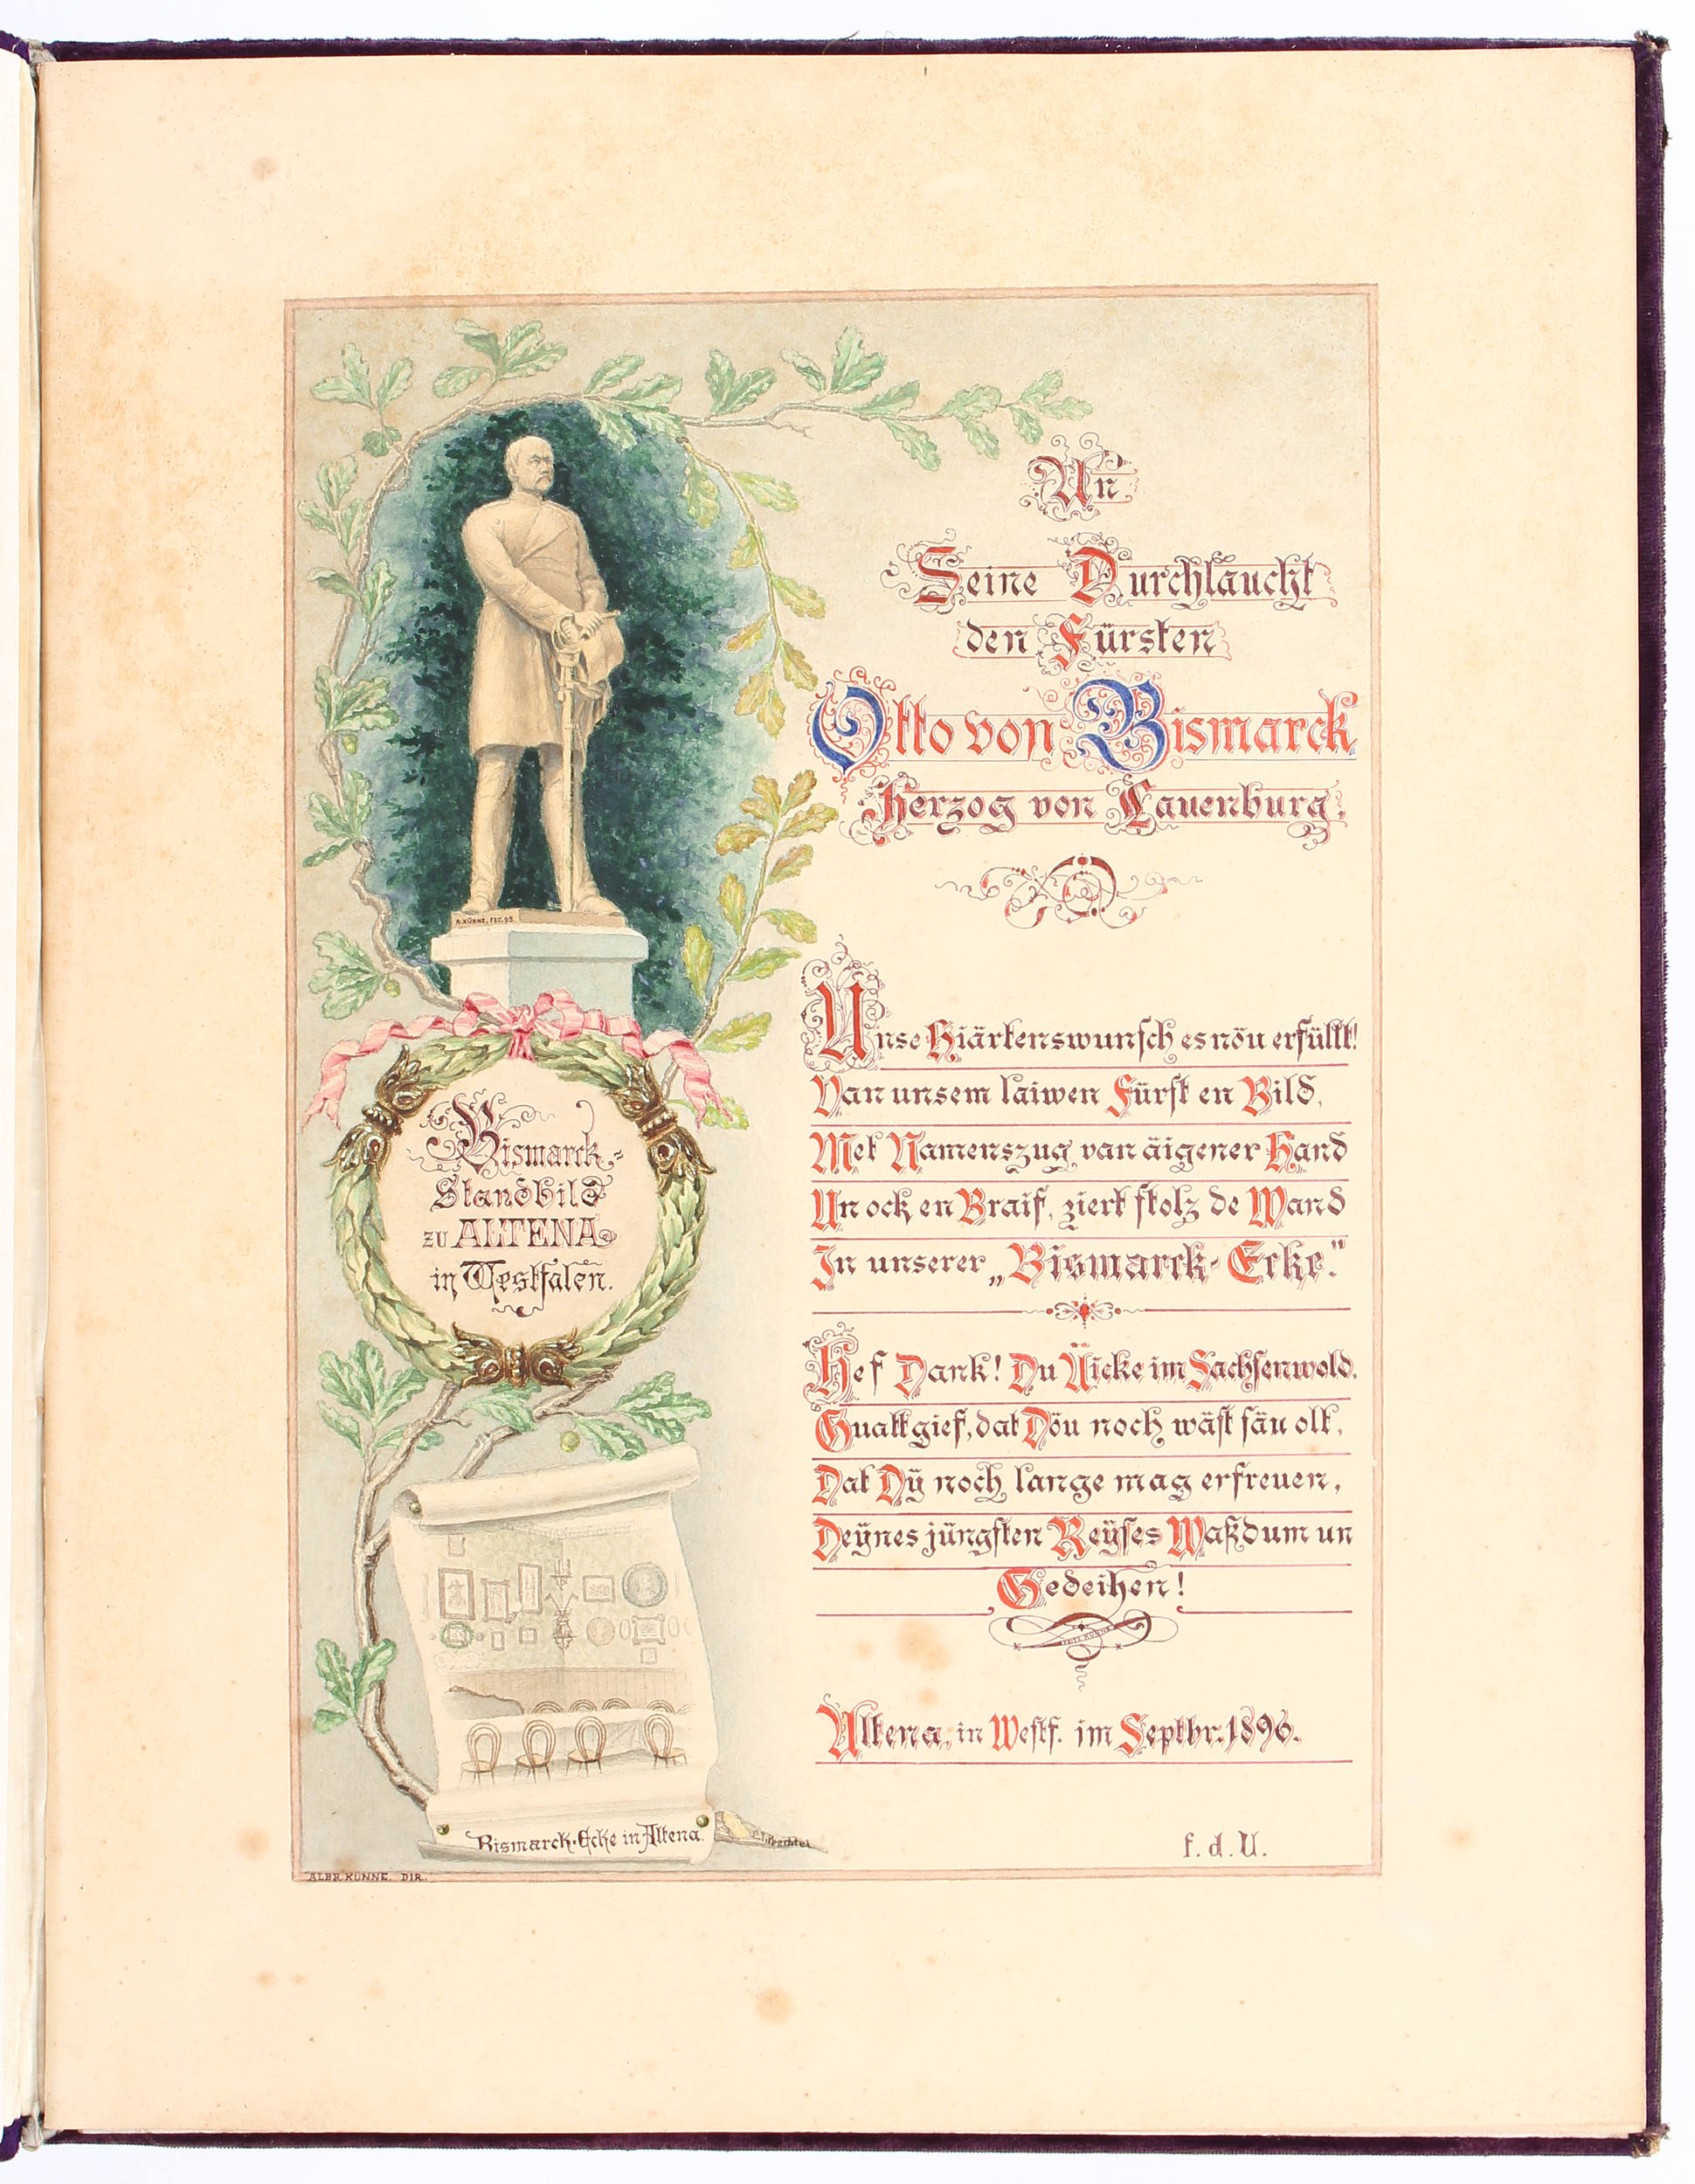 An
Seine Durchlaucht
den Fürsten
Otto von Bismarck
Herzog von Lauenburg.
Unse Hiärtenswunsch es nöu erfüllt!
Van unsem laiwen Fürst en Bild,
Met Namenszug van äigener Hand
Un ock en Braif, ziert stolz de Wand
In unserer „Bismarck-Ecke."
Hef Dank! Du Äicke im Sachsenwold.
Guatt gief, dat Döu noch wäst säu olt,
Dat Dÿ noch lange mag erfreuen,
Deÿnes jüngsten Reÿses Waßdum un
Gedeihen!
Altena, in Westf. im Septbr. 1896.
f. d. U.
A. KÜHNE. FEC. 95.
Bismarck-
Standbild
zu ALTENA
in Westfalen.
Bismarck-Ecke in Altena.
ALBR. KÜNNE. DIR.